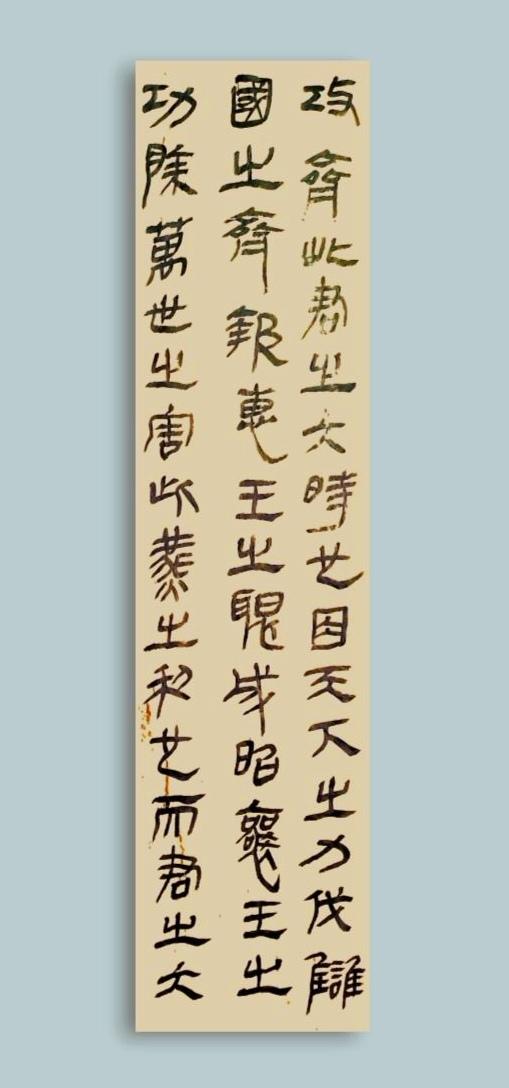 攻齊此君之大時也因天下之力伐讎
國之齊報惠王之聭成昭襄王之
功除萬世之害此燕之利也而君之大